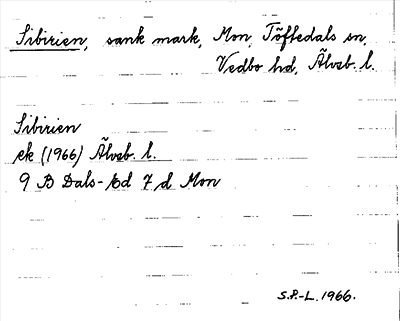 Sibirien, sank mark, Mon, Töftedals sn,
Vedbo hd, Älvsb. l.
Sibirien
ek (1966) Älvsb. l.
9 B Dals-Ed 7 d Mon
S.P.-L. 1966.